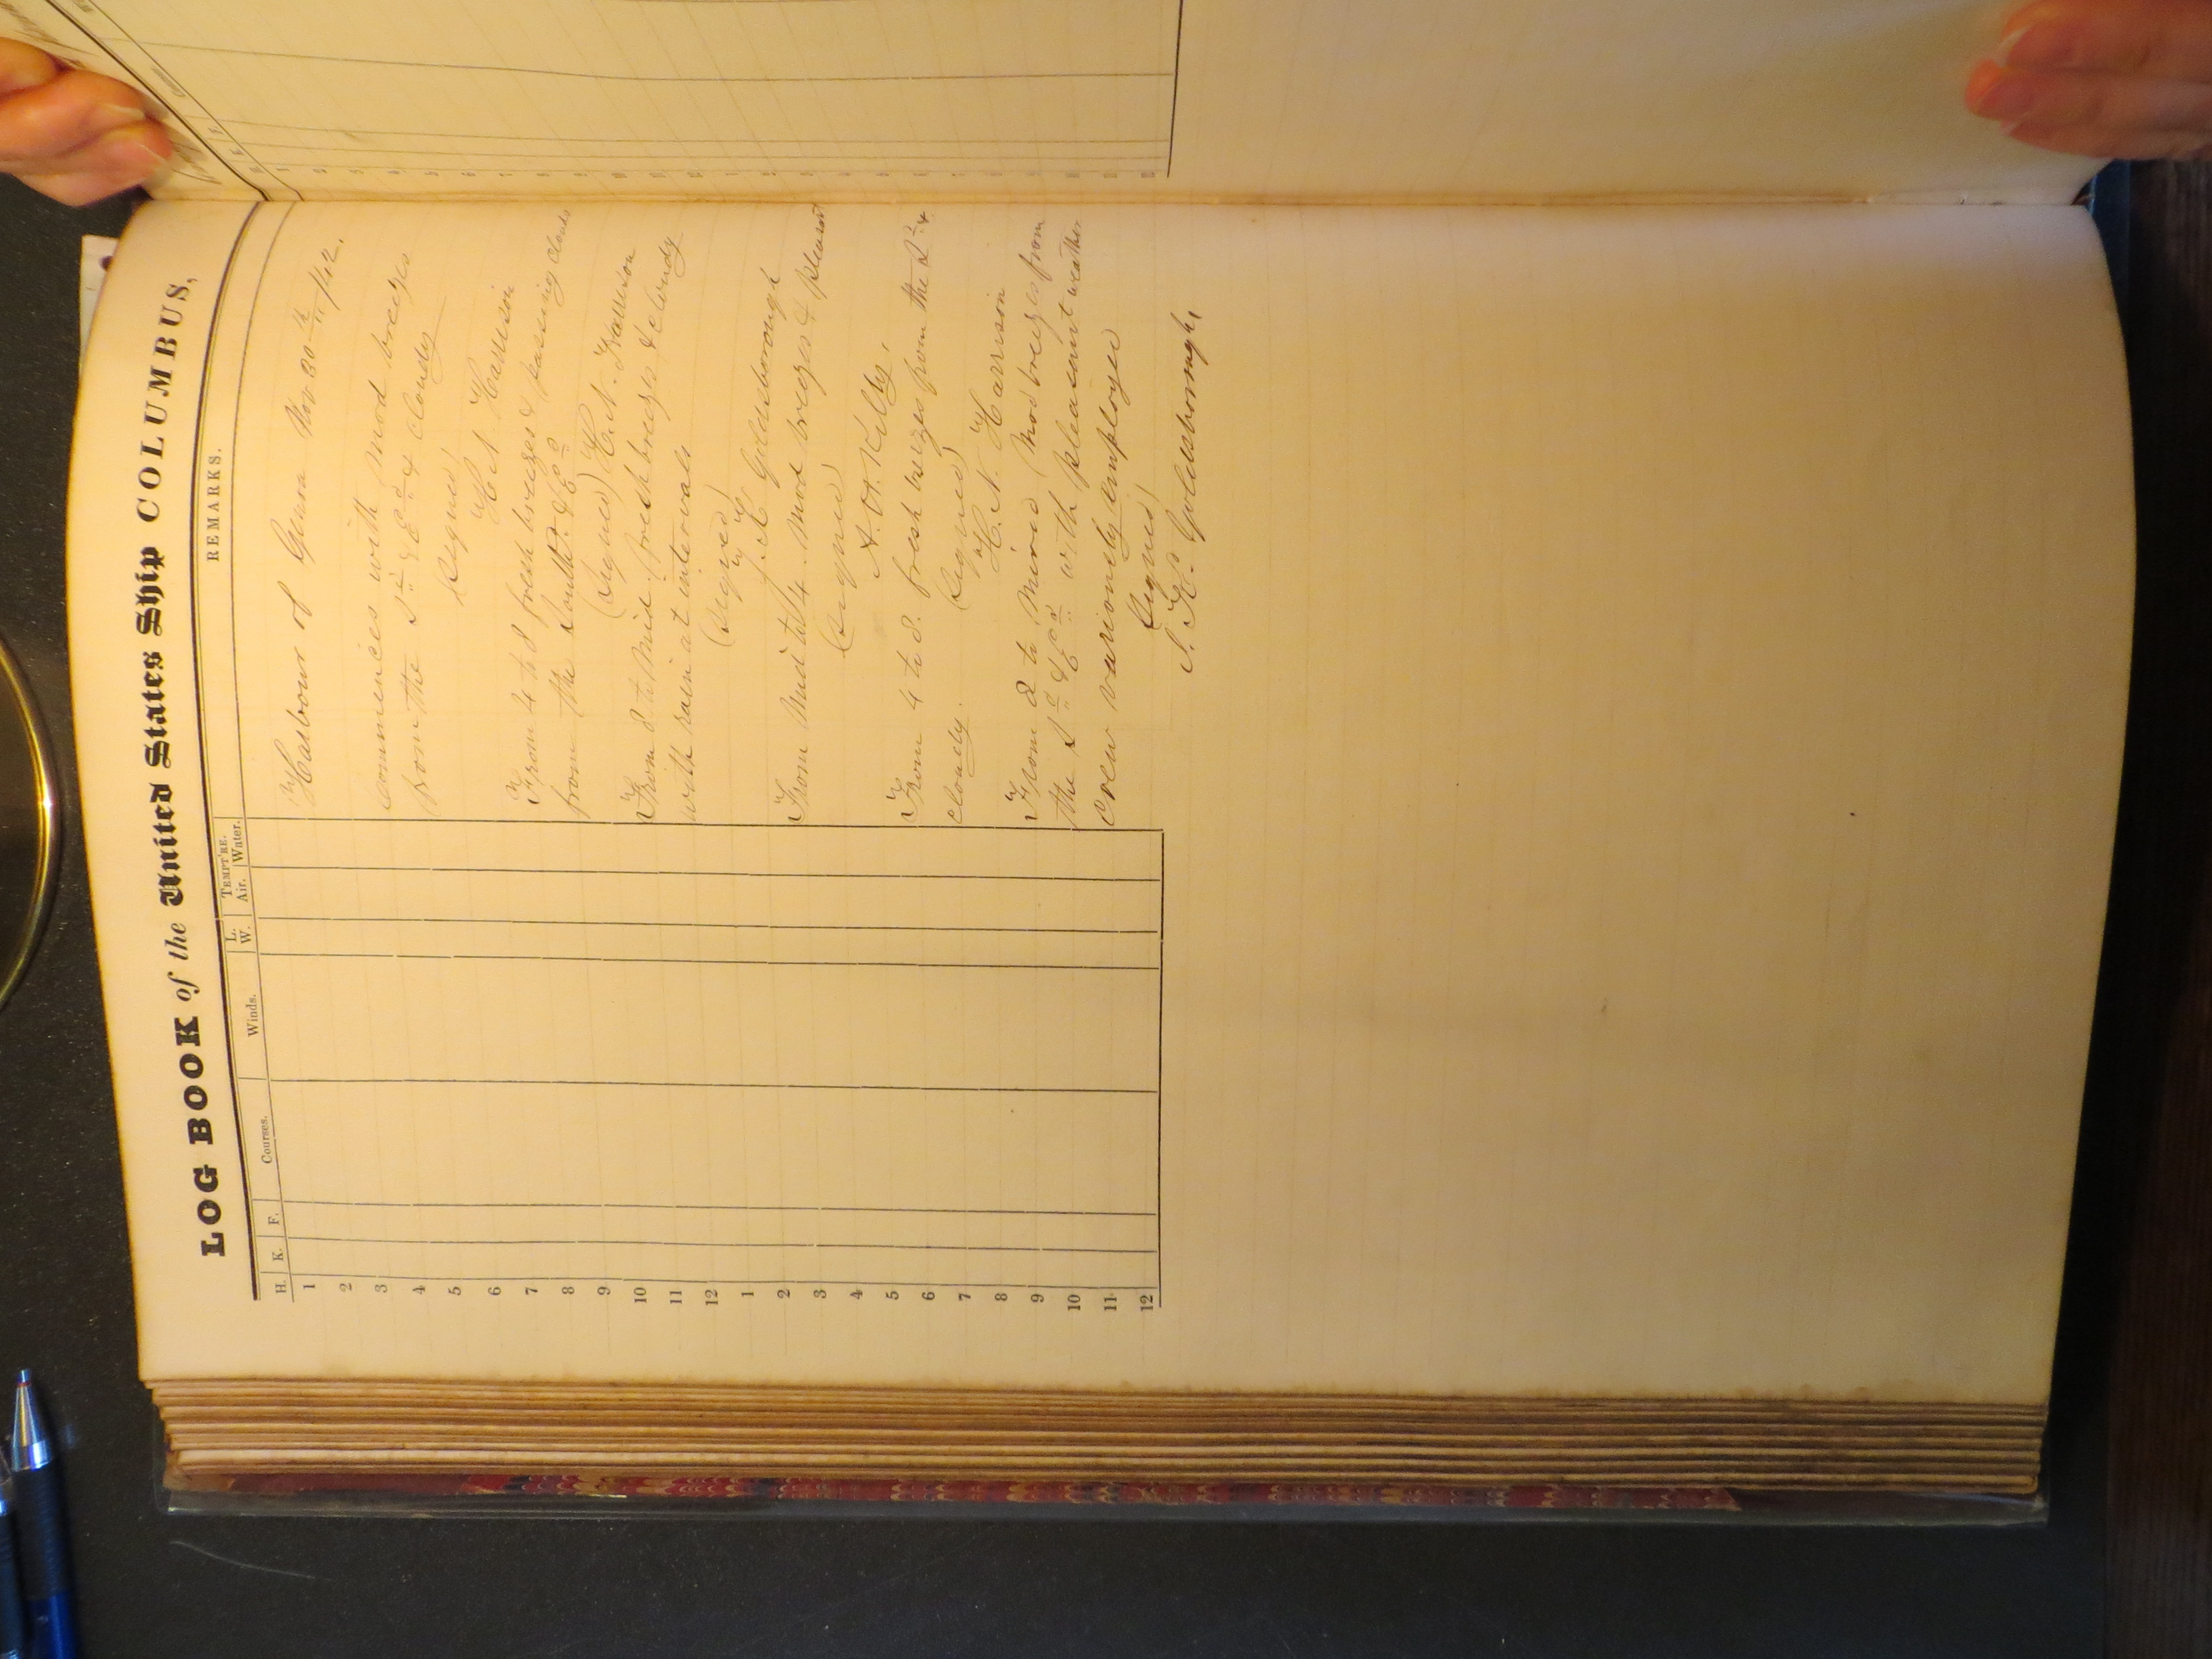 LOG BOOK of the United States Ship COLUMBUS,
H. K. F. Courses. Winds. L. W. TEMPT'RE. Air. Water. REMARKS.
1
2
3
4
5
6
7
8
9
10
11
12
1
2
3
4
5
6
7
8
9
10
11
12
Harbour of Genoa Nov 30th /42.
Commences with mod breezes
from the Sd & Ed & Cloudy
(Signed)
H N Harrison
From 4 to 8 fresh breezes & passing clouds
from the Southd & Ed
(Signed) H. N. Harrison
From 8 to Mid. fresh breezes & cloudy
with rain at intervals
(Signed)
J. R. Goldsborough
From Mid to 4. Mod breezes & pleasant
(Signed)
A. H. Kilty.
From 4 to 8. fresh breezes from the Sd &
cloudy.
(Signed)
H. N. Harrison
From 8 to Merid Mod breezes from
the Sd & Ed with pleasant weather
Crew variously employed
(Signed)
J. R. Goldsborough,